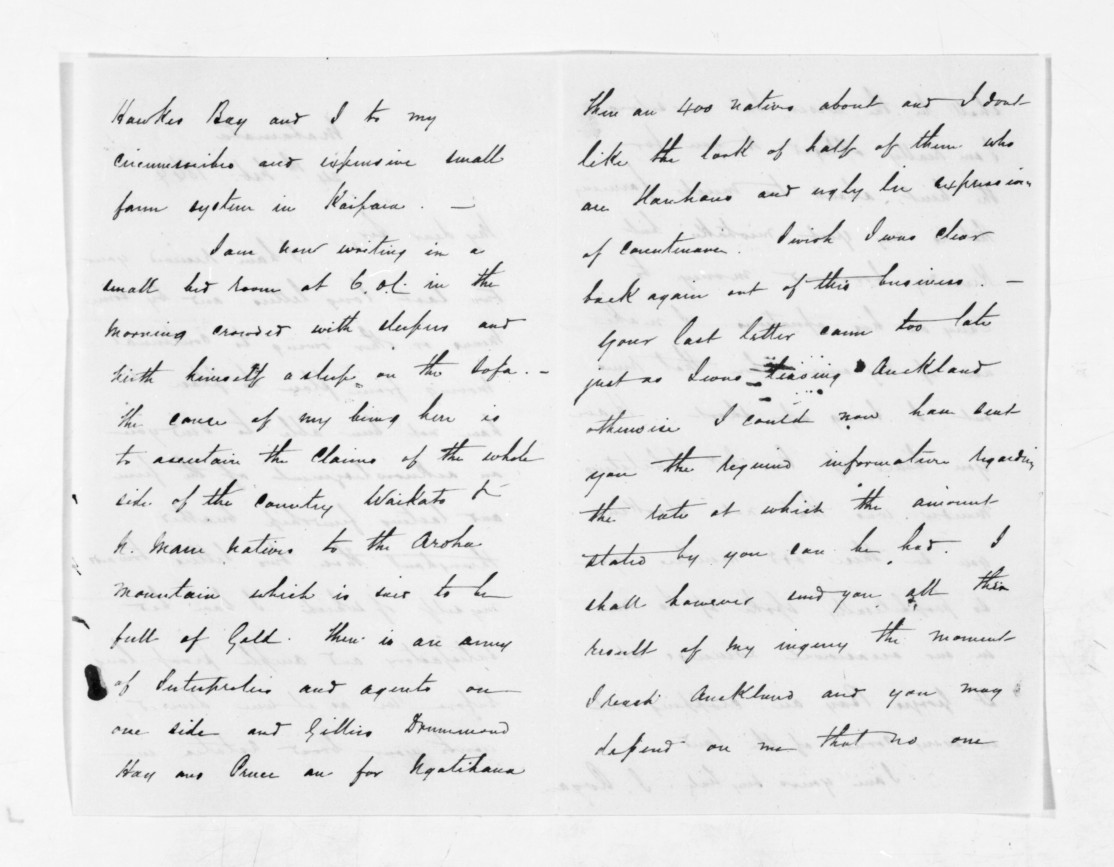 Hawkes Bay and I to my
circumscribed and expensive small
farm system in Kaipara. —
I am now writing in a
small bed room at 6.o.c. in the
morning crowded with sleepers and
himself asleep on the Sofa. —
the cause of my being here is
to ascertain the claims of the whole
side of the country Waikato &
N. Maru Natives to the Aroha
Mountain which is said to be
full of Gold. There is an army
of Interpreters and agents on
one side and Gillies Drummond
Hay and Puce are for Ngatihaua
There are 400 natives about and I dont
like the look of half of them who
are Hauhaus and ugly in expression
of countenance. I wish I was clear
back again out of this business. —
Your last letter came too late
just as I was leaving Auckland
otherwise I could now have sent
you the required information regarding
the rate at which the amount
stated by you can be had. I
shall however send you all the
result of my inquiry the moment
I reach Auckland and you may
depend on me that no one